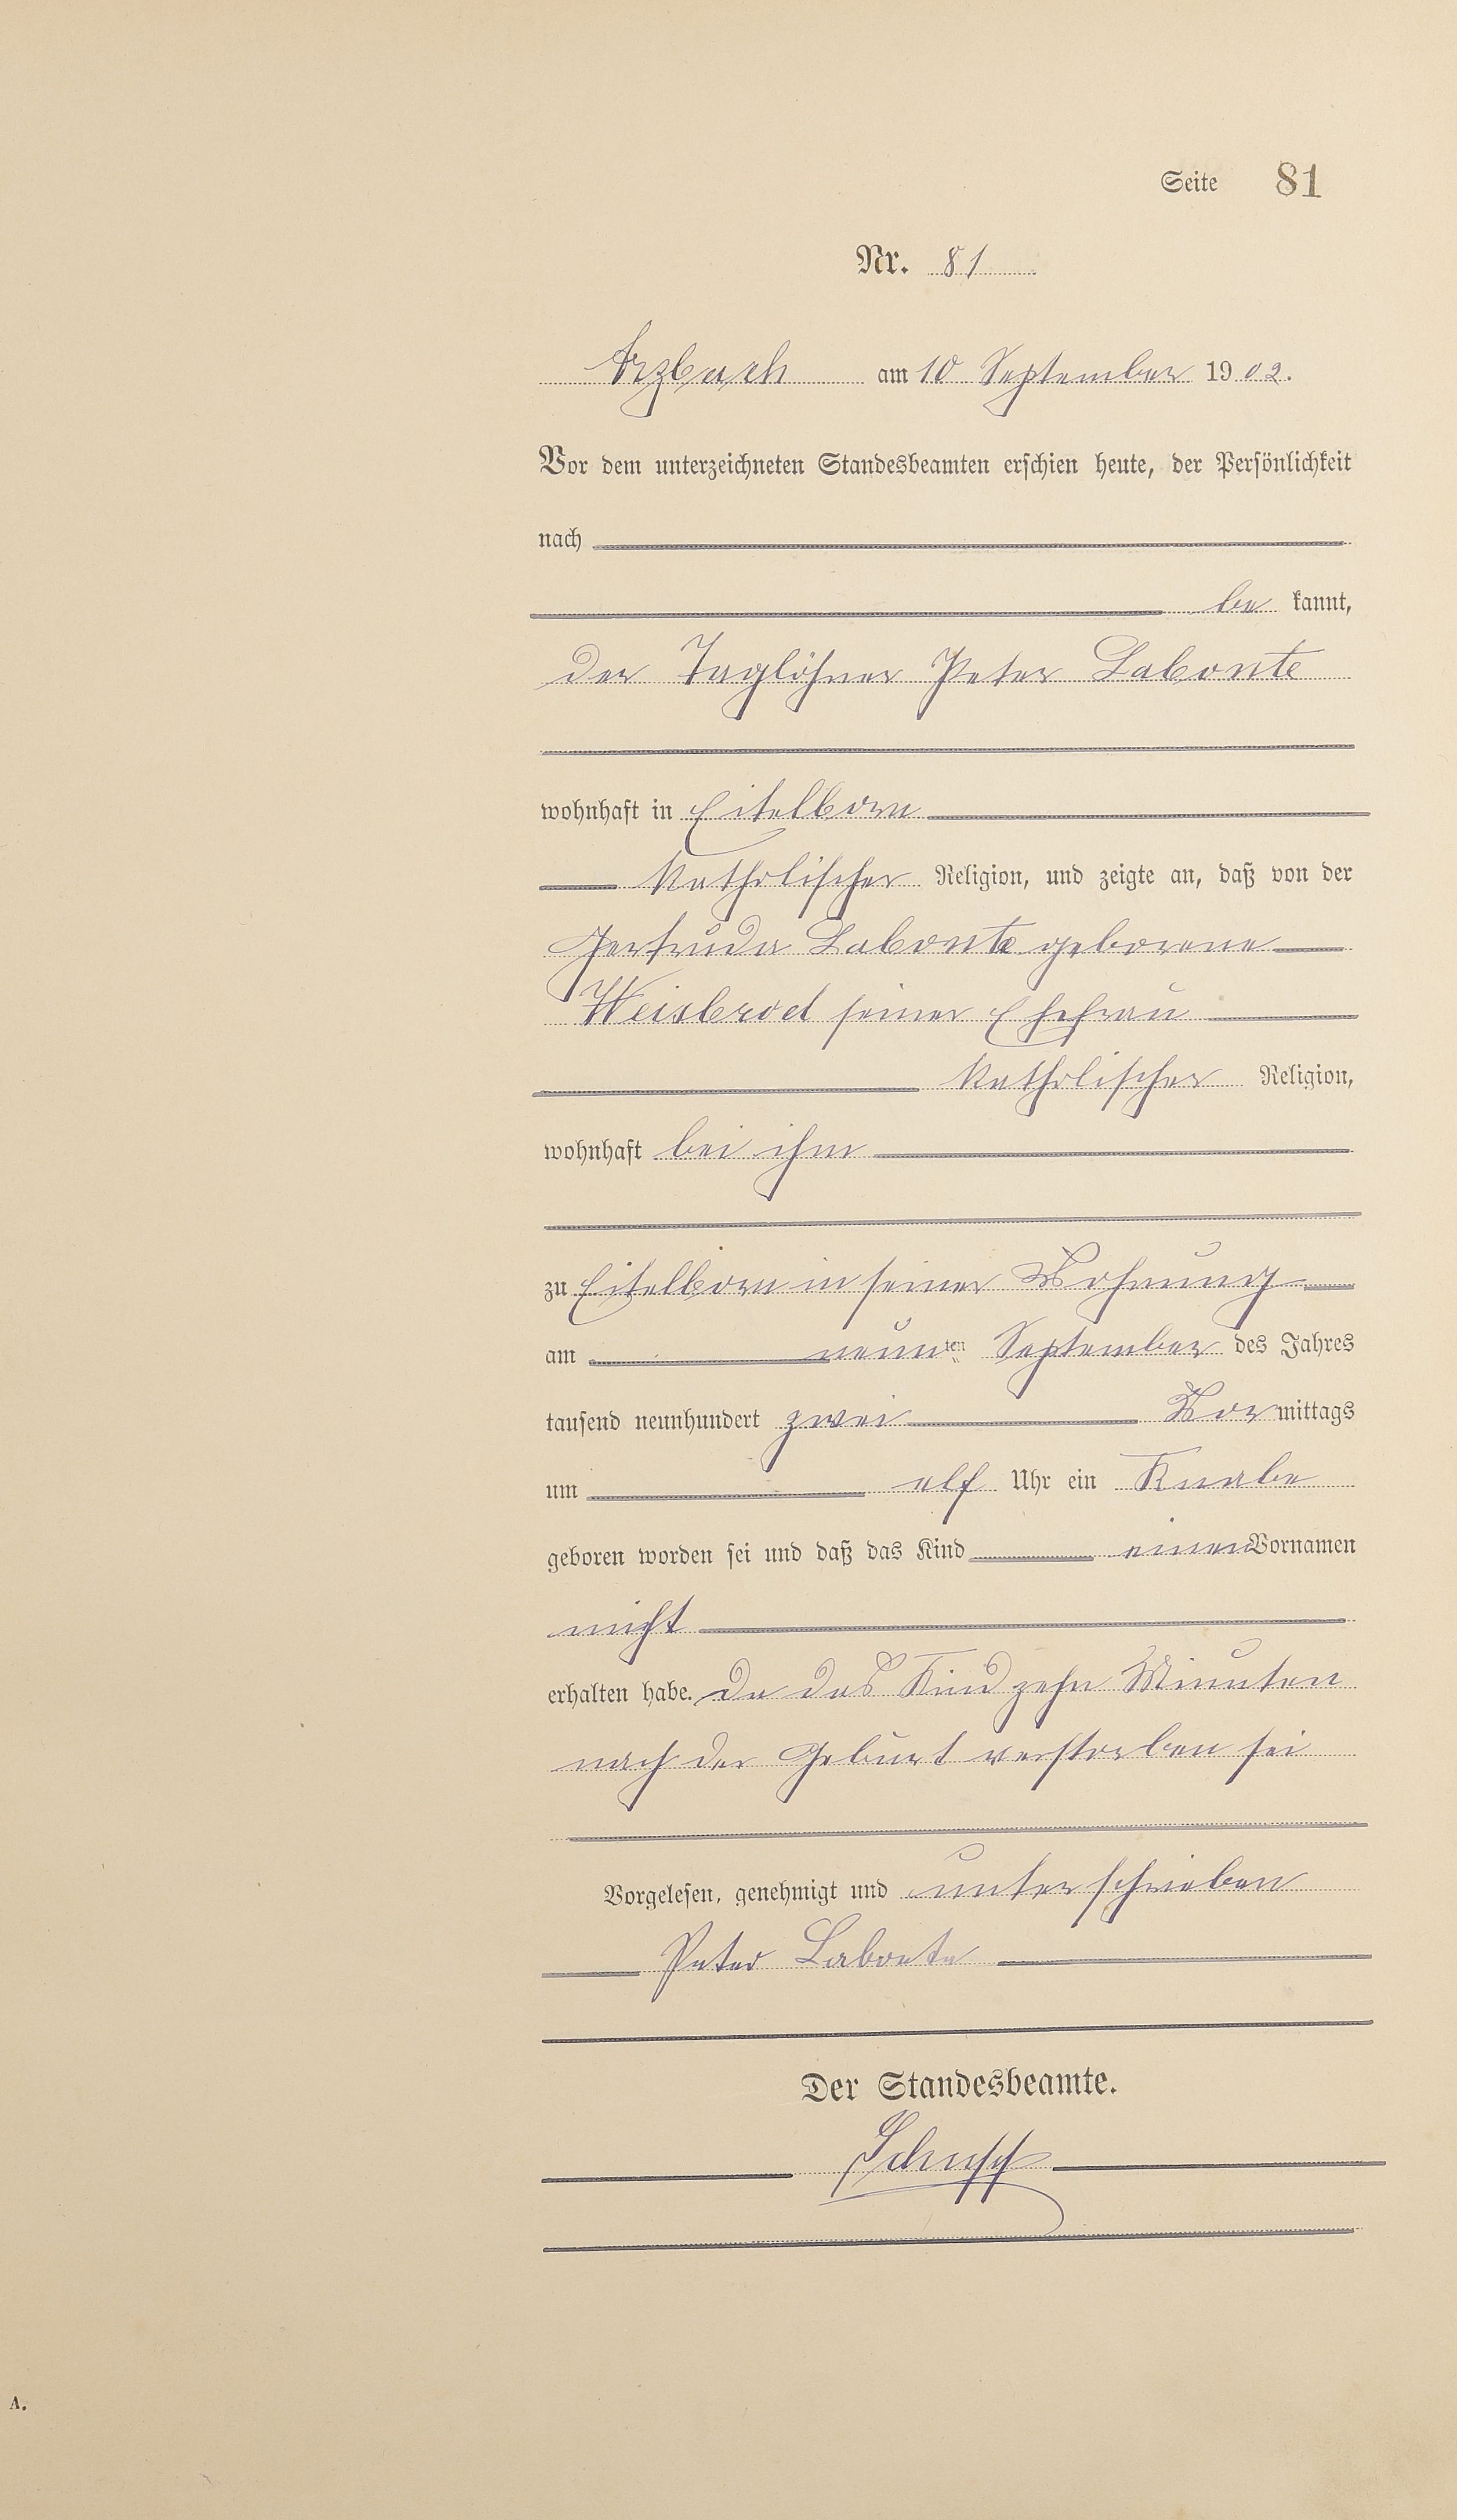 Seite 81
Nr. 81
Arzbach am 10 September 1902.
Vor dem unterzeichneten Standesbeamten erschien heute, der Persönlichkeit
nach
be kannt,
der Taglöhner Peter Labonte
wohnhaft in Eitelborn
katholischer Religion, und zeigte an, daß von der
Gertruda Labonte geborene
Weisbrod seiner Ehefrau
katholischer Religion,
wohnhaft bei ihm
zu Eitelborn in seiner Wohnung
am neunten September des Jahres
tausend neunhundert zwei Vormittags
um elf Uhr ein Knabe
geboren worden sei und daß das Kind einen Vornamen
nicht
erhalten habe. da das Kind zehn Minuten
nach der Geburt verstorben sei
Vorgelesen, genehmigt und unterschrieben
Peter Labonte
Der Standesbeamte.
A.